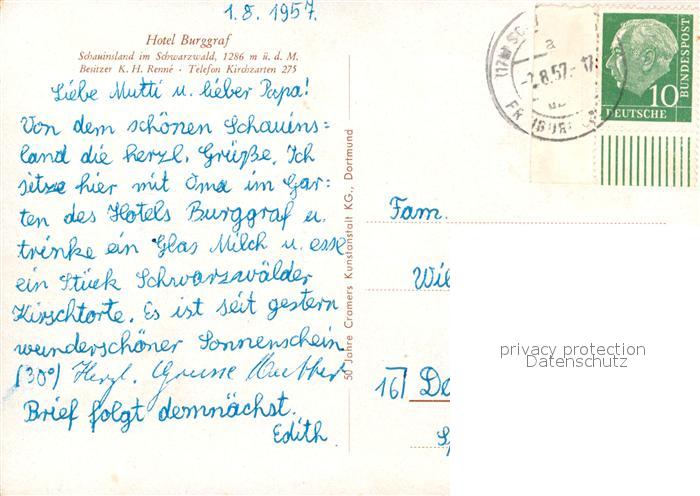 1.8.1957.
Hotel Burggraf
Schauinsland im Schwarzwald, 1286 m ü. d. M.
Besitzer K. H. Renné · Telefon Kirchzarten 275
Liebe Mutti u. lieber Papa!
Von dem schönen Schauins=
land die herzl. Grüße. Ich
sitze hier mit Oma im Gar=
ten des Hotels Burggraf u.
trinke ein Glas Milch u. esse
ein Stück Schwarzwälder
Kirschtorte. Es ist seit gestern
wunderschöner Sonnenschein
(30°) Herzl. Grüsse Mutter
Brief folgt demnächst.
Edith.
50 Jahre Cramers Kunstanstalt KG., Dortmund
a
-2.8.57.-17
10
DEUTSCHE
BUNDESPOST
Fam.
Wil
16) De
privacy protection
Datenschutz